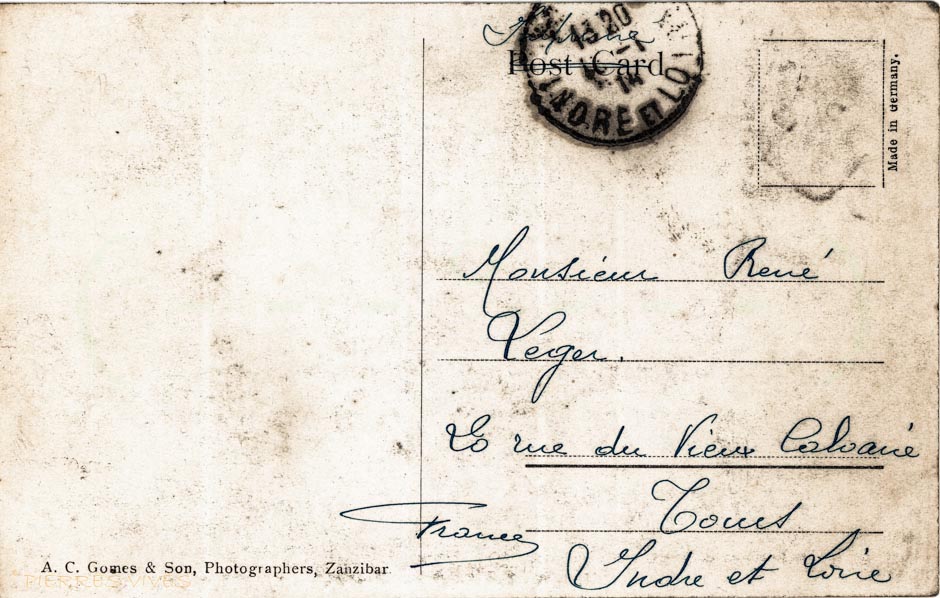 Imprimé
Post Card
13 20
-1
14
INDRE ET LO
Made in Germany.
Monsieur René
Verger.
20 rue du Vieux Calvaire
Tours
France
Indre et Loire
A. C. Gomes & Son, Photographers, Zanzibar
PIERRES VIVES